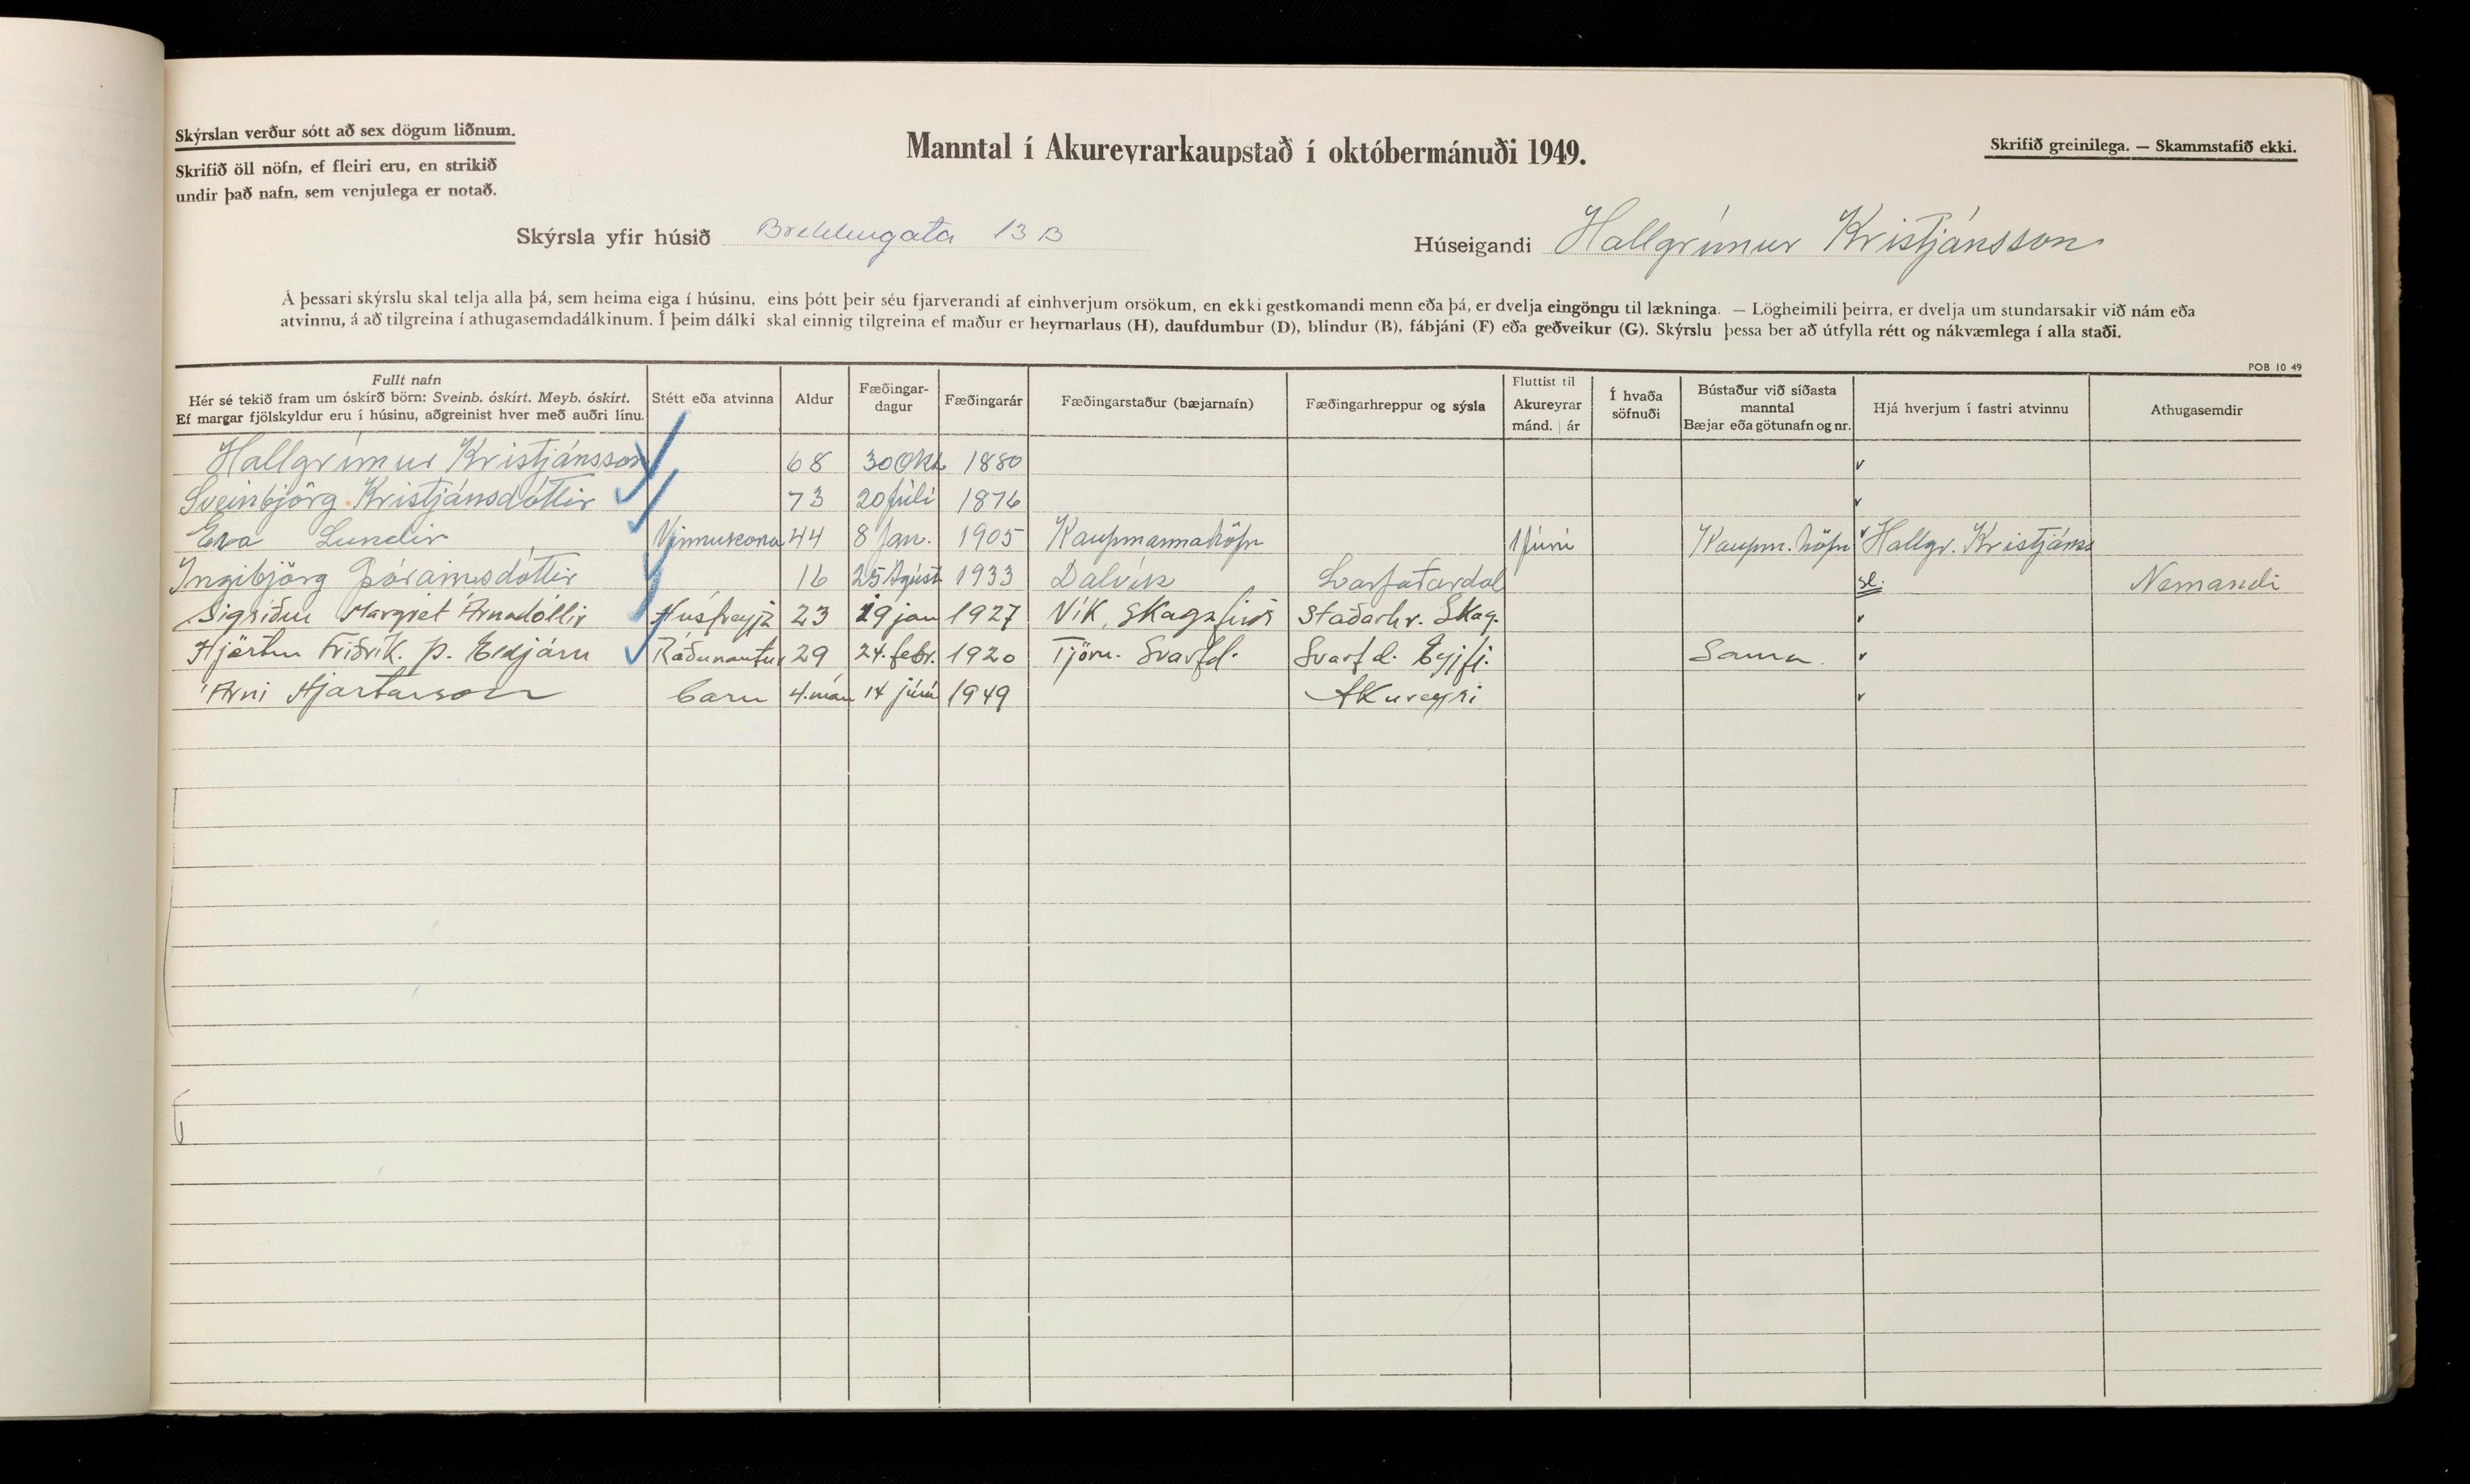 Skýrslan verður sótt að sex dögum liðnum.
Skrifið öll nöfn, ef fleiri eru, en strikið
undir það nafn, sem venjulega er notað.
Manntal í Akureyrarkaupstað í októbermánuði 1949.
Skrifið greinilega. — Skammstafið ekki.
Skýrsla yfir húsið Brekkugata 13 B
Húseigandi Hallgrímur Kristjánsson
Á þessari skýrslu skal telja alla þá, sem heima eiga í húsinu, eins þótt þeir séu fjarverandi af einhverjum orsökum, en ekki gestkomandi menn eða þá, er dvelja eingöngu til lækninga. — Lögheimili þeirra, er dvelja um stundarsakir við nám eða
atvinnu, á að tilgreina í athugasemdadálkinum. Í þeim dálki skal einnig tilgreina ef maður er heyrnarlaus (H), daufdumbur (D), blindur (B), fábjáni (F) eða geðveikur (G). Skýrslu þessa ber að útfylla rétt og nákvæmlega í alla staði.
POB 10 49
Fullt nafn
Hér sé tekið fram um óskírð börn: Sveinb. óskírt. Meyb. óskírt.
Ef margar fjölskyldur eru í húsinu, aðgreinist hver með auðri línu.
Stétt eða atvinna
Aldur
Fæðingar-
dagur
Fæðingarár
Fæðingarstaður (bæjarnafn)
Fæðingarhreppur og sýsla
Fluttist til
Akureyrar
mánd. | ár
Í hvaða
söfnuði
Bústaður við síðasta
manntal
Bæjar eða götunafn og nr.
Hjá hverjum í fastri atvinnu
Athugasemdir
Hallgrímur Kristjánsson 68 30 Okt. 1880
Sveinbjörg Kristjánsdóttir 73 20 júlí 1876
Eva Lundir Vinnukona 44 8 Jan. 1905 Kaupmannahöfn 1 júní Kaupm.höfn Hallgr. Kristjáns
Ingibjörg Þórarinsdóttir 16 25 Ágúst 1933 Dalvík Svarfaðardal sl. Nemandi
Sigríður Margrét Árnadóttir Húsfreyja 23 19 jan 1927 Vík, Skagafirði Staðarhr. Skag.
Hjörtur Friðrik. Þ. Eldjárn Ráðunautur 29 24. febr. 1920 Tjörn. Svarfd. Svarfd. Eyjfj. Sama
Árni Hjartarson barn 4. mán 14 júní 1949 Akureyri